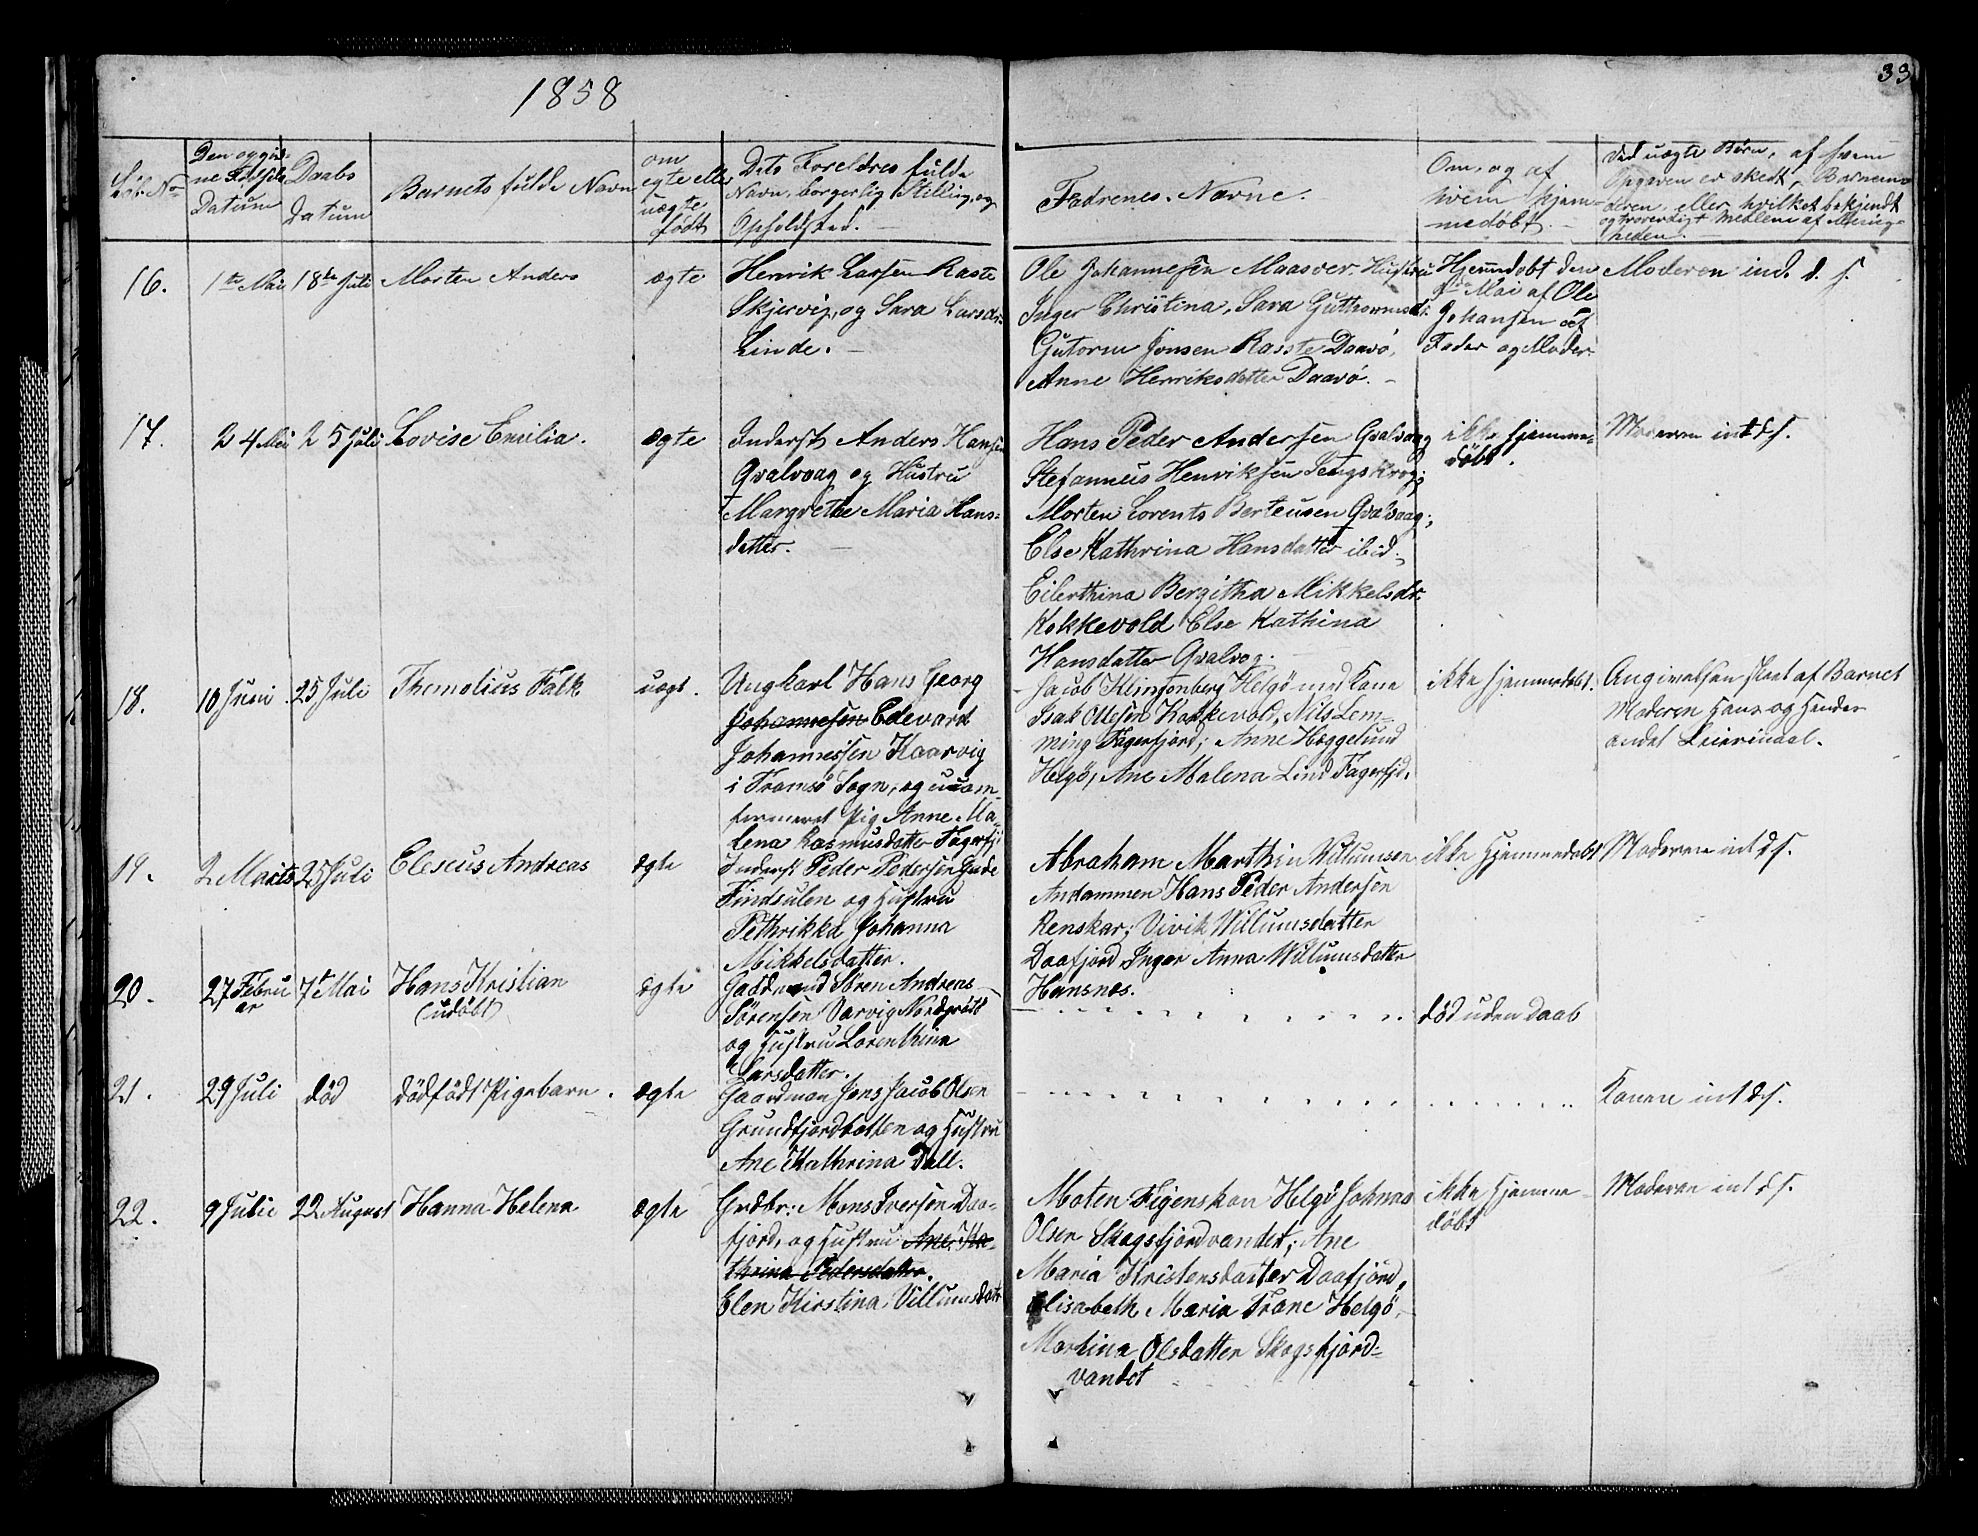 1858
33
Løb. No
Den opgiv-
ne Fødsels
Datum
Daabs
Datum
Barnets fulde Navn
om
egte eller
uægte
født
Dets Foreldres fulde
Navn, borgerlig Stilling, og
Opholdsted.
Fadrenes Navne.
Om, og af
hvem hjem-
medøbt.
Ved uægte Børn, af hvem
Opgaven er skedt, Barnemo-
deren, eller hvilket bekjendt
og troverdigt Medlem af Menig-
heden.
16. 1te Mai 18de Juli Morten Anders ægte
Henrik Larsen Raste
Skjervig, og Sara Larsdr.
Linde. —
Ole Johannesen Maasver. Hustru
Inger Christina, Sara Guthormsd:
Gutorm Jonsen Rasste Daavø,
Anne Henriksdatter Daavø. —
Hjemdøbt den
Mai af Ole
Johansen
Fader og Moder
Moderen ind. d. s.
17. 24 Mai 25 Juli Lovise Emilia. ægte
Inderst Anders Hansen
Qvalvaag og Hustru
Margrethe Maria Hans-
datter. —
Hans Peder Andersen Qvalvaag
Stefanneus Henriksen Lengskrog;
Morten Lorents Berteusen Qvalvaag;
Else Kathrina Hansdatter ibid.,
Eilerthina Bergitha Mikkelsdr.
Kokkevold Else Kathina
Hansdatter Qvalvog.
ikke hjemme-
døbt.
Moderen int d s.
18. 10 Juni 25 Juli Themolius Falk uægt.
Ungkarl Hans Georg
Johannesen Edevard
Johannessen Kaarvig
i Tromsø Sogn, og ucon-
firmeret Pig Anne Ma-
lena Rasmusdatter Fagerfj:
Jacob Klingenberg Helgø med Kone
Isak Olesen Kokkevold, Nils Lem-
ming Fagerfjord; Anne Hæggelund
Helgø, Ane Malena Lind Fagerfjd.
ikke hjemmedøbt.
Angivelsen skeet af Barnet
Moderen Hans og Hendes
andet Leiermaal.
19. 2 Marts 25 Juli Eleseus Andreas ægte
Inderst Peder Pedersen Gude
Findsulen og Hustru
Pethrikka Johanna
Mikkelsdatter.
Abraham Marthin Willumsen
Andammen Hans Peder Andersen
Renskar; Vivik Willumsdatter
Daafjord Inger Anna Willumsdatter
Hansnes.
ikke Hjemmedøbt
Moderen int d s.
20. 27 Febru
ar 7de Mai Hans Kristian
(udøbt) ægte
Gaardmand Søren Andreas
Sørensen Varvig Nordgrøtø
og Hustru Lorenthina
Larsdatter.
død uden Daab
21. 29 Juli død dødfødt Pigebarn. ægte
Gaardman Jens Jacob Olsen
Grundfjordbotten og Hustru
Ane Kathrina Dall.
Konen int d s.
22. 9 Julie 22 August Hanna Helena ægte
Grdbr: Mons Iversen Daa-
fjord, og Hustru Ane Ka-
thrina Pedersdatter.
Elen Kirstina Villumsdatr
Moten Figenskou Helgø Johnas
Olsen Skogsfjordvandet; Ane
Maria Kristensdatter Daafjord,
Elisabeth Maria Trane Helgø,
Martina Olsdatter Skogsfjord-
vandet
ikke Hjemme-
døbt
Moderen int d s.